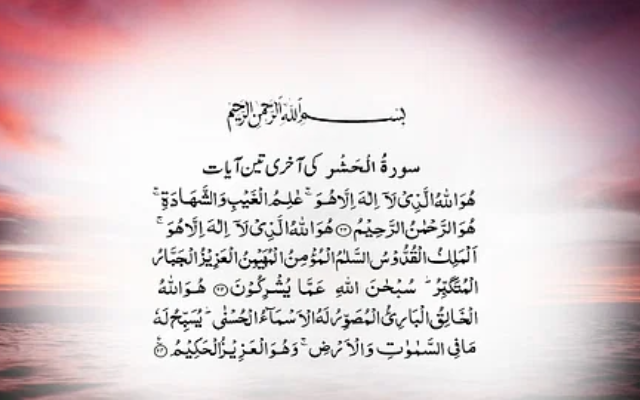 بسم الله الرحمن الرحيم
سورۃُ الْحَشْر کی آخری تین آیات
هُوَ اللهُ الَّذِیْ لَآ اِلٰهَ اِلَّا هُوَ ۚ عٰلِمُ الْغَیْبِ وَالشَّهَادَةِ ۚ
هُوَ الرَّحْمٰنُ الرَّحِیْمُ ﴿۲۲﴾ هُوَ اللهُ الَّذِیْ لَآ اِلٰهَ اِلَّا هُوَ ۚ
اَلْمَلِكُ الْقُدُّوْسُ السَّلٰمُ الْمُؤْمِنُ الْمُهَیْمِنُ الْعَزِیْزُ الْجَبَّارُ
الْمُتَكَبِّرُ ؕ سُبْحٰنَ اللهِ عَمَّا یُشْرِكُوْنَ ﴿۲۳﴾ هُوَ اللهُ
الْخَالِقُ الْبَارِئُ الْمُصَوِّرُ لَهُ الْاَسْمَآءُ الْحُسْنٰی ؕ یُسَبِّحُ لَهٗ
مَا فِی السَّمٰوٰتِ وَالْاَرْضِ ۚ وَهُوَ الْعَزِیْزُ الْحَكِیْمُ ﴿۲۴﴾